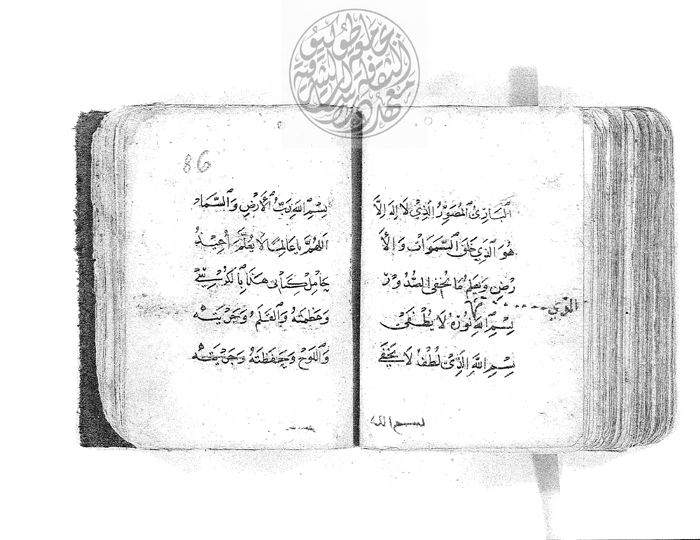 البارئ المصوّر الذي لا إله إلا
هو الذي خلق السموات والأ
رض ويعلم ما تخفي الصدور
الذي
بسم الله نوره لا يطفى
بسم الله الذي لطفه لا يخفى
بسم الله
86
بسم الله ربّ الأرض والسماء
اللهم يا عالما لا يعلّم أعيذ
حامل كتابي هذا بالكرسي
وعظمته والقلم وجريته
واللوح وحفظته